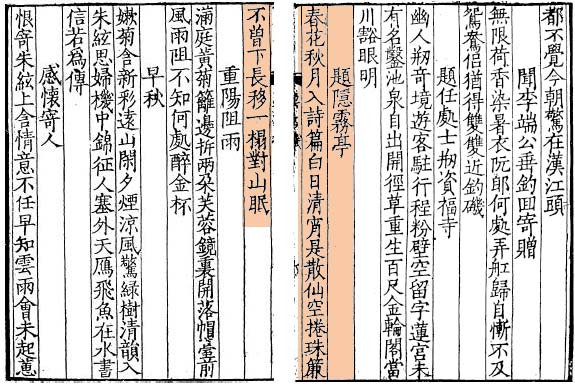 都不覺今朝驚在漢江頭
聞李端公垂釣囬寄贈
無限荷香染暑衣阮郎何處弄舡歸自慚不及
鴛鴦侶猶得雙雙近釣磯
題任處士剏資福寺
幽人剏奇境遊客駐行程粉壁空留字蓮宮未
有名鑿池泉自出開徑草重生百尺金輪閣當
川豁眼明
題隱霧亭
春花秋月入詩篇白日清宵是散仙空捲珠簾
不曾下長移一榻對山眠
重陽阻雨
滿庭黃菊籬邊拆兩朵芙蓉鏡裏開落帽臺前
風雨阻不知何處醉金杯
早秋
嫩菊含新彩遠山閑夕煙涼風驚綠樹清韻入
朱絃思婦機中錦征人塞外天鴈飛魚在水書
信若為傳
感懷寄人
恨寄朱絃上含情意不任早知雲雨會未起蕙